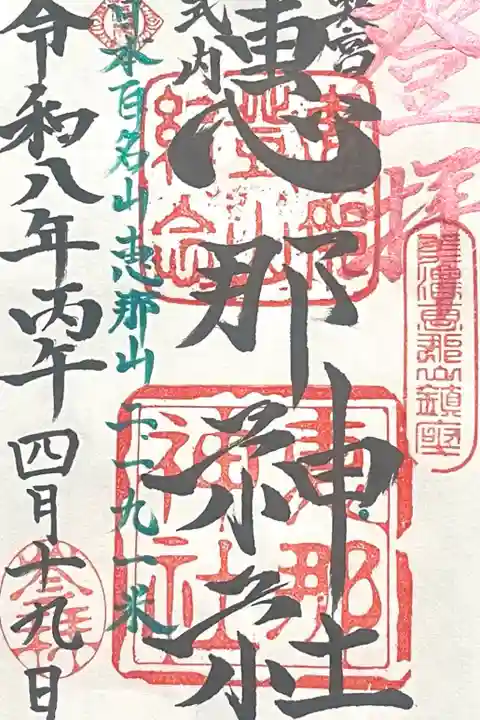 登拝
美濃惠那山鎮座
奥宮
式内
恵那神社
恵那神社
日本百名山恵那山 二一九一米
令和八年丙午四月十九日